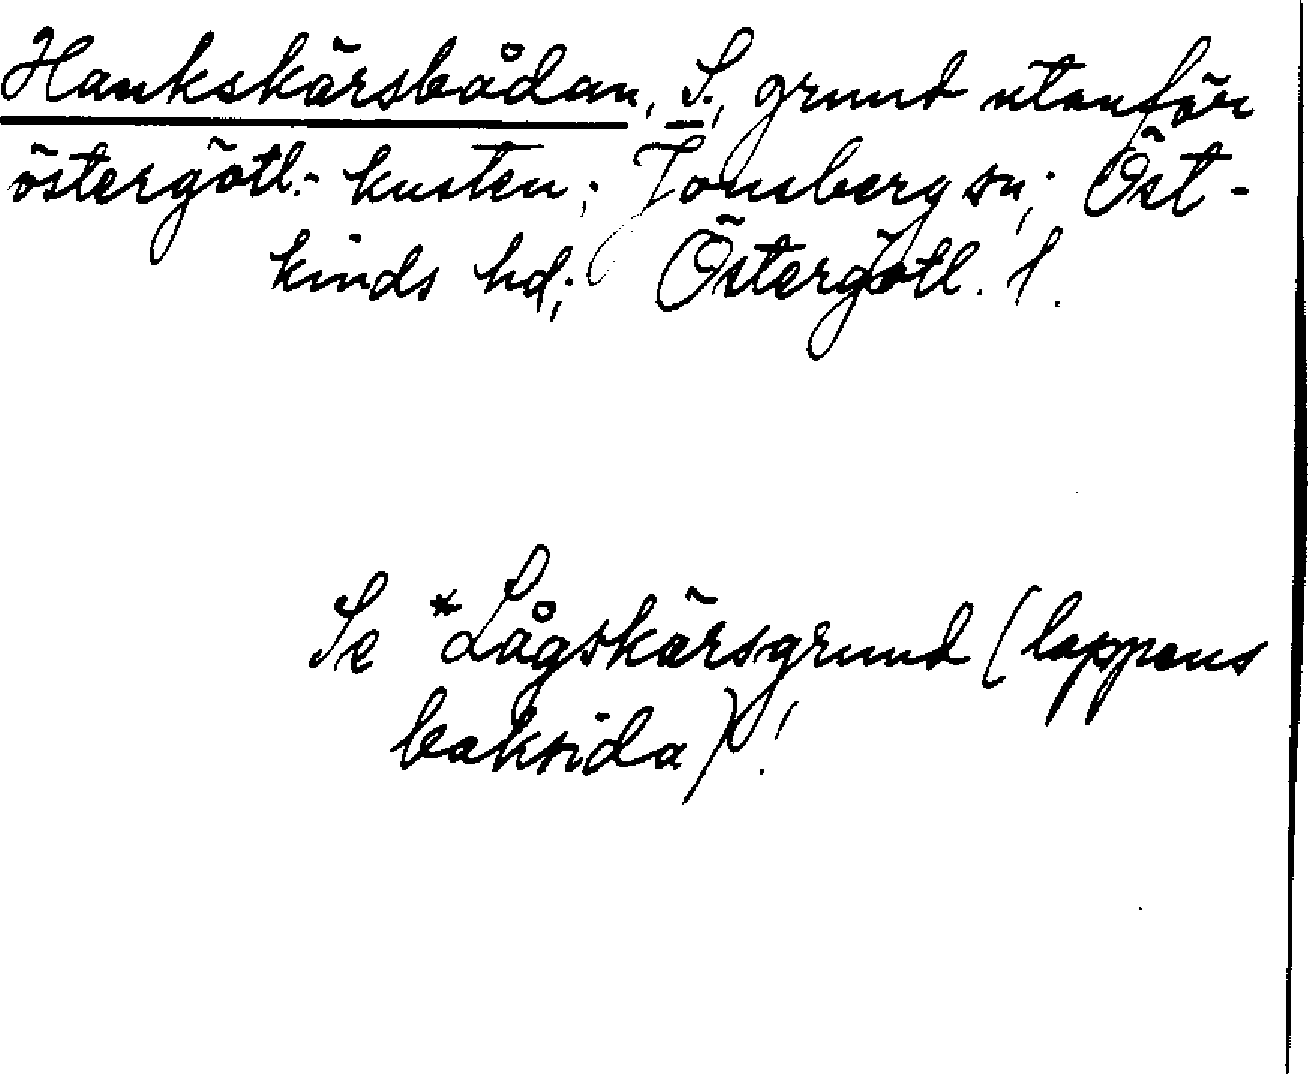 Hankskärsbådan, S., grund utanför
östergötl.- kusten; Jonsberg sn; Öst-
kinds hd; Östergötl. l.
Se *Lågskärsgrund (lappens
baksida)!